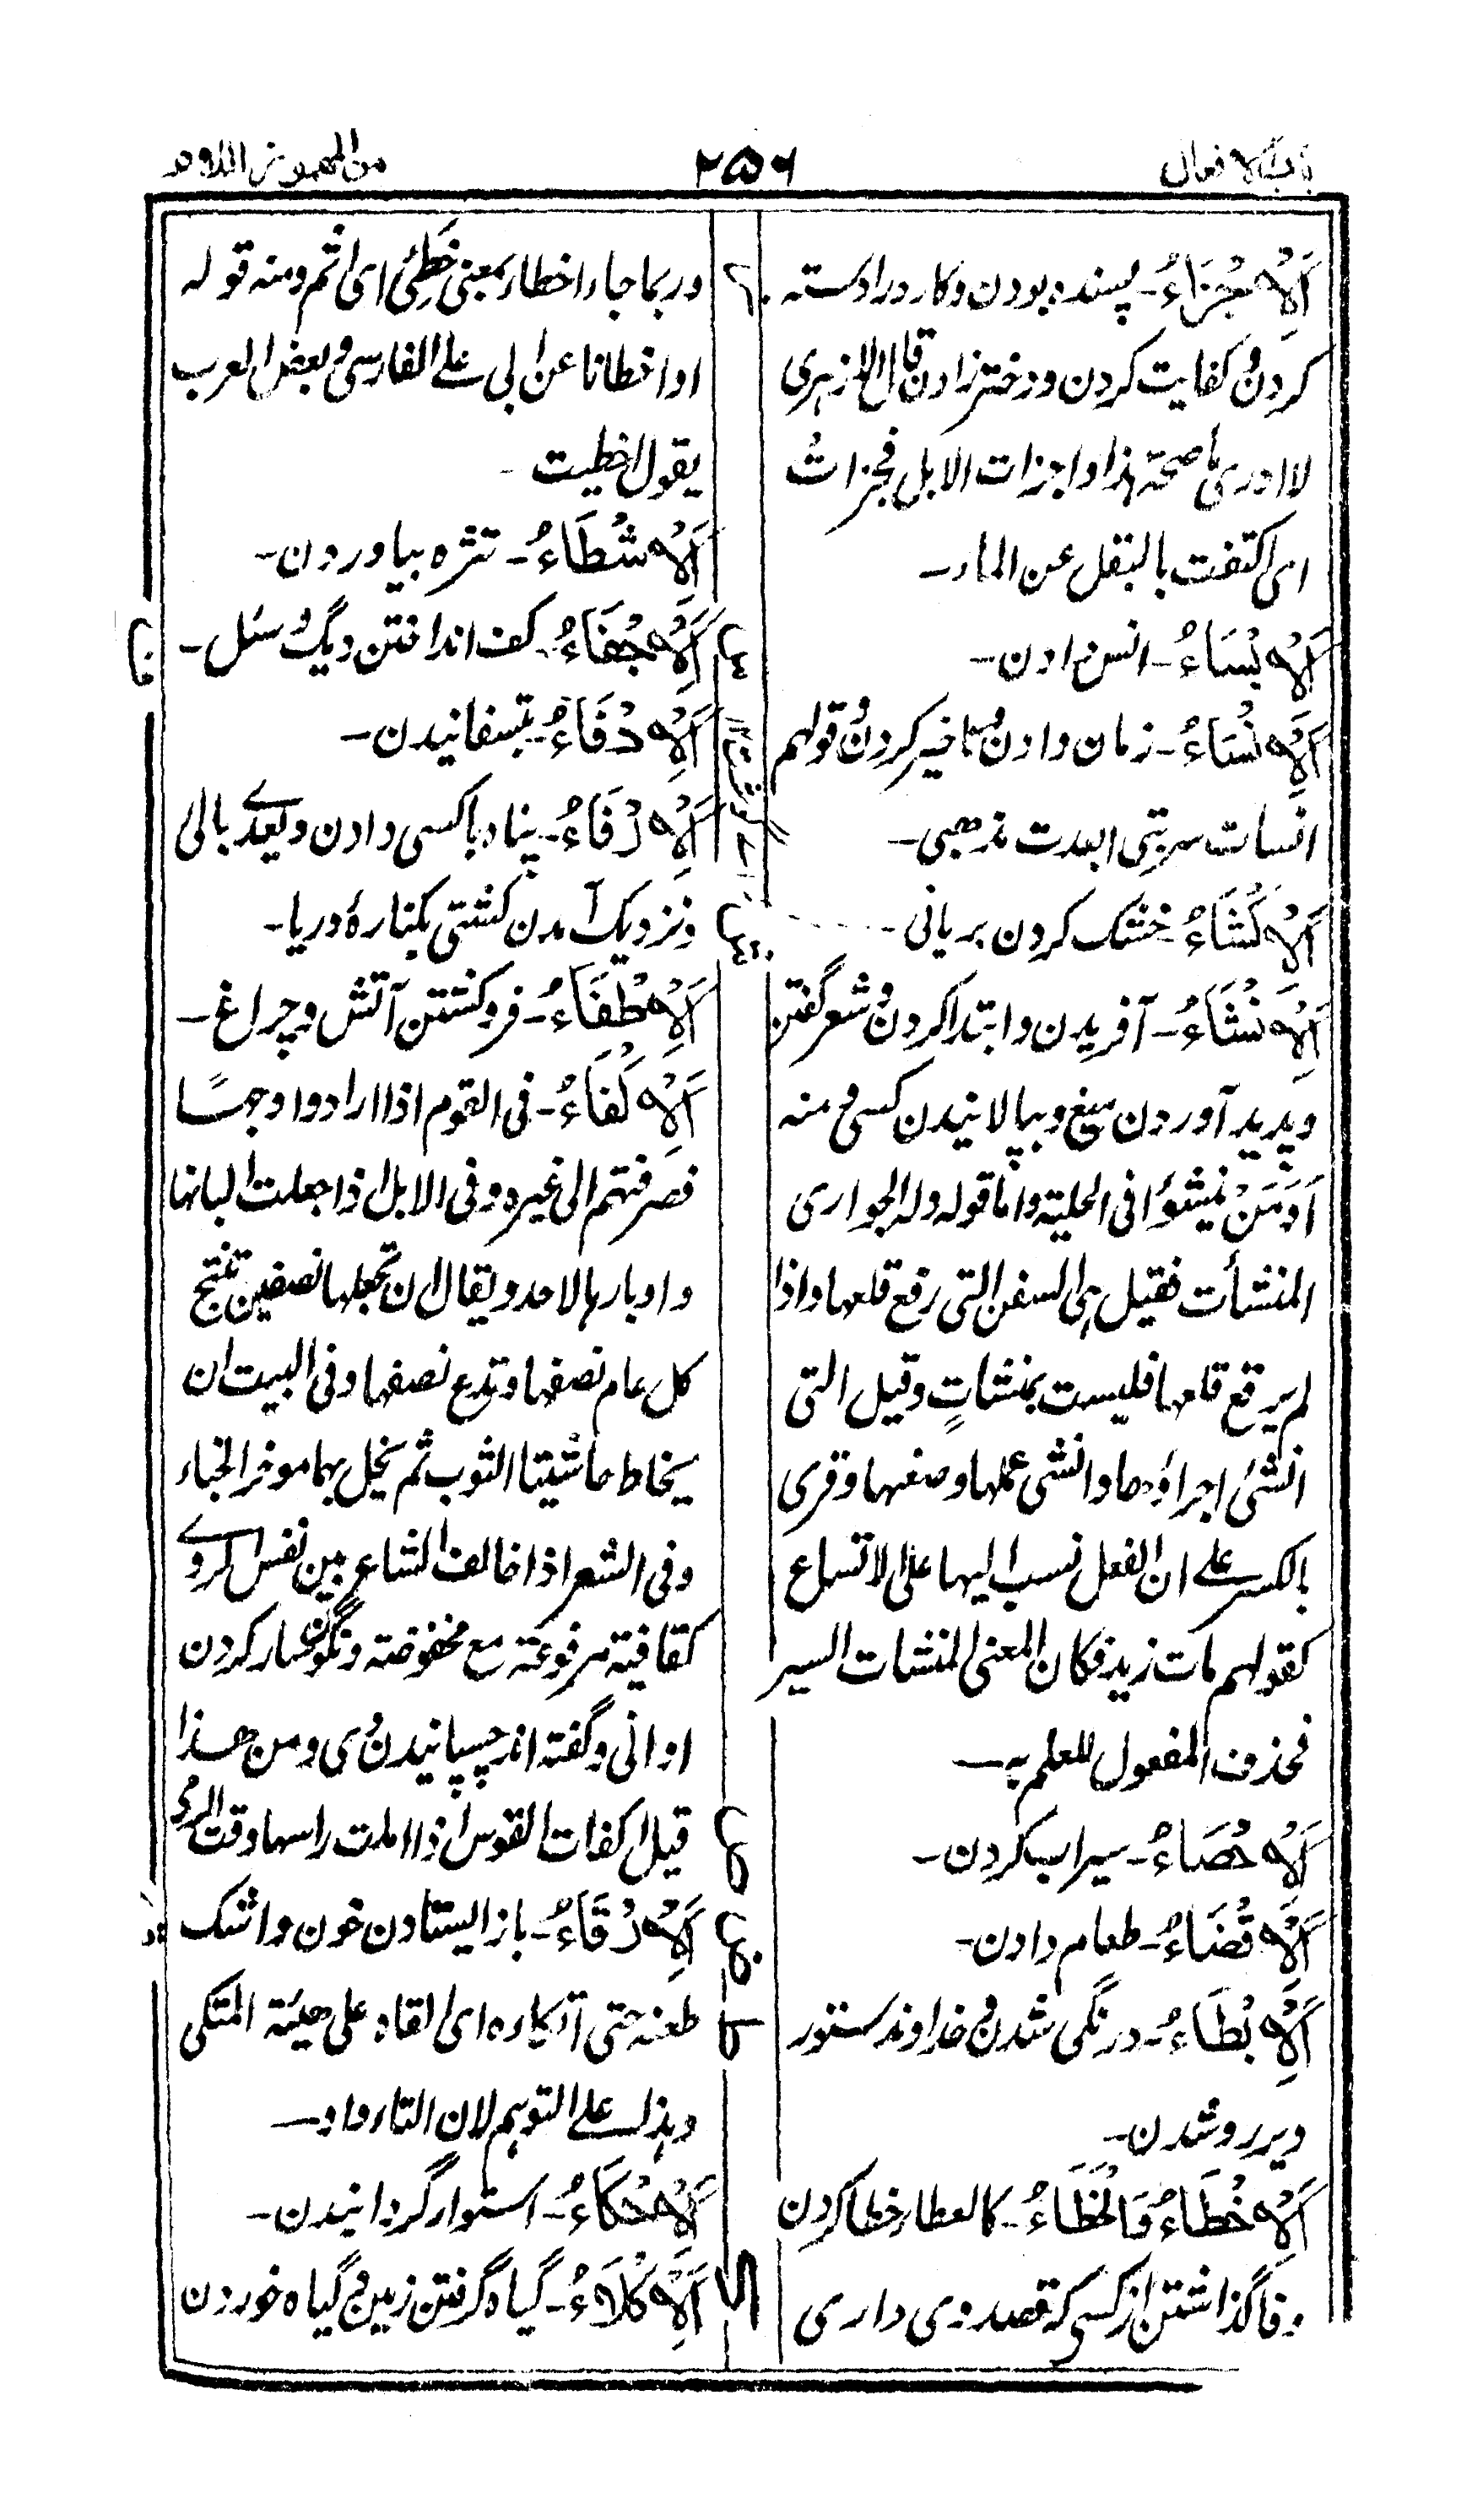 باب الافعال
۲۵۶
من المهموز اللام
اَلْاِجْزَاءُ۔ پسنده بودن و کارد را دسته
کردن و کفایت کردن و دختر زادن قال الازهری
لا ادری ما صحة هذا و اجزات الابل فجزات
ای اکتفت بالبقل عن الماء۔
اَلْاِبْسَاءُ۔ انس دادن۔
اَلْاِنْسَاءُ۔ زمان دادن و تاخیر کردن و قولهم
انسات سربتی ابعدت مذهبی۔
اَلْاِکْشَاءُ۔ خشک کردن بریانی۔
اَلْاِنْشَاءُ۔ آفریدن و ابتدا کردن و شعر گفتن
و پدید آوردن میغ و بپالانیدن کسی و منه
اَوَمَنْ ینشؤا فی الحلیة و اما قوله وله الجواری
المنشأت فقیل هی السفن التی رفع قلعها و اذا
لم یرفع قلعها فلیست بمنشاتٍ و قیل التی
انشئ اجراؤها و انشی عملها و صنعها و قری
بالکسر علی ان الفعل نسب الیها علی الاتساع
کقولهم مات زید فکان المعنی المنشات السیر
فحذف المفعول للعلم به۔
اَلْاِحْصَاءُ۔ سیراب کردن۔
اَلْاِقْضَاءُ۔ طعام دادن۔
اَلْاِبْطَاءُ۔ درنگی شدن و خداوند ستور
دیررو شدن۔
اَلْاِخْطَاءُ وَالْخَطَاءُ۔ کالعطاء خطا کردن
و فاگذاشتن از کسی که قصد وی داری
و ربما جاء اخطاء بمعنی خَطِئَ ای اثم و منه قوله
او اخطانا عن ابی علی الفارسی و بعض العرب
یقول اخطیت۔
اَلْاِشْطَاءُ۔ تژه بیاوردن۔
اَلْاِجْفَاءُ۔ کف انداختن دیگ و سئل۔
اَلْاِدْفَاءُ۔ تبسفانیدن۔
اَلْاِرْفَاءُ۔ پناه باکسی دادن و یعدی بالی
و نزدیک آمدن کشتی بکنارهٔ دریا۔
اَلْاِطْفَاءُ۔ فروکشتن آتش و چراغ۔
اَلْاِکْفَاءُ۔ فی القوم اذا ارادوا وجهًا
فصرفتهم الی غیره و فی الابل اذا جعلت البانها
و اوبارها لاحد و یقال ان تجعلها نصفین تنتج
کل عام نصفها و تدع نصفها و فی البیت ان
یخاط حاشیتا الثوب ثم یخل بهما موخر الخباء
و فی الشعر اذا خالف الشاعر بین نفس الروی
کقافیة مرفوعة مع مخفوضة و نگونسار کردن
اوانی و گفته اند چسپانیدن وی و من هذا
قیل اکفات القوس اذا املت راسها وقت الرمی
اَلْاِرْقَاءُ۔ باز ایستادن خون و اشک
طعنه حتی اتکاره ای القاه علی هیئة المتکی
و هذا علی التوهم لان التاء واو۔
اَلْاِحْکَاءُ۔ استوار گردانیدن۔
اَلْاِکْلَاءُ۔ گیاه گرفتن زمین و گیاه خوردن